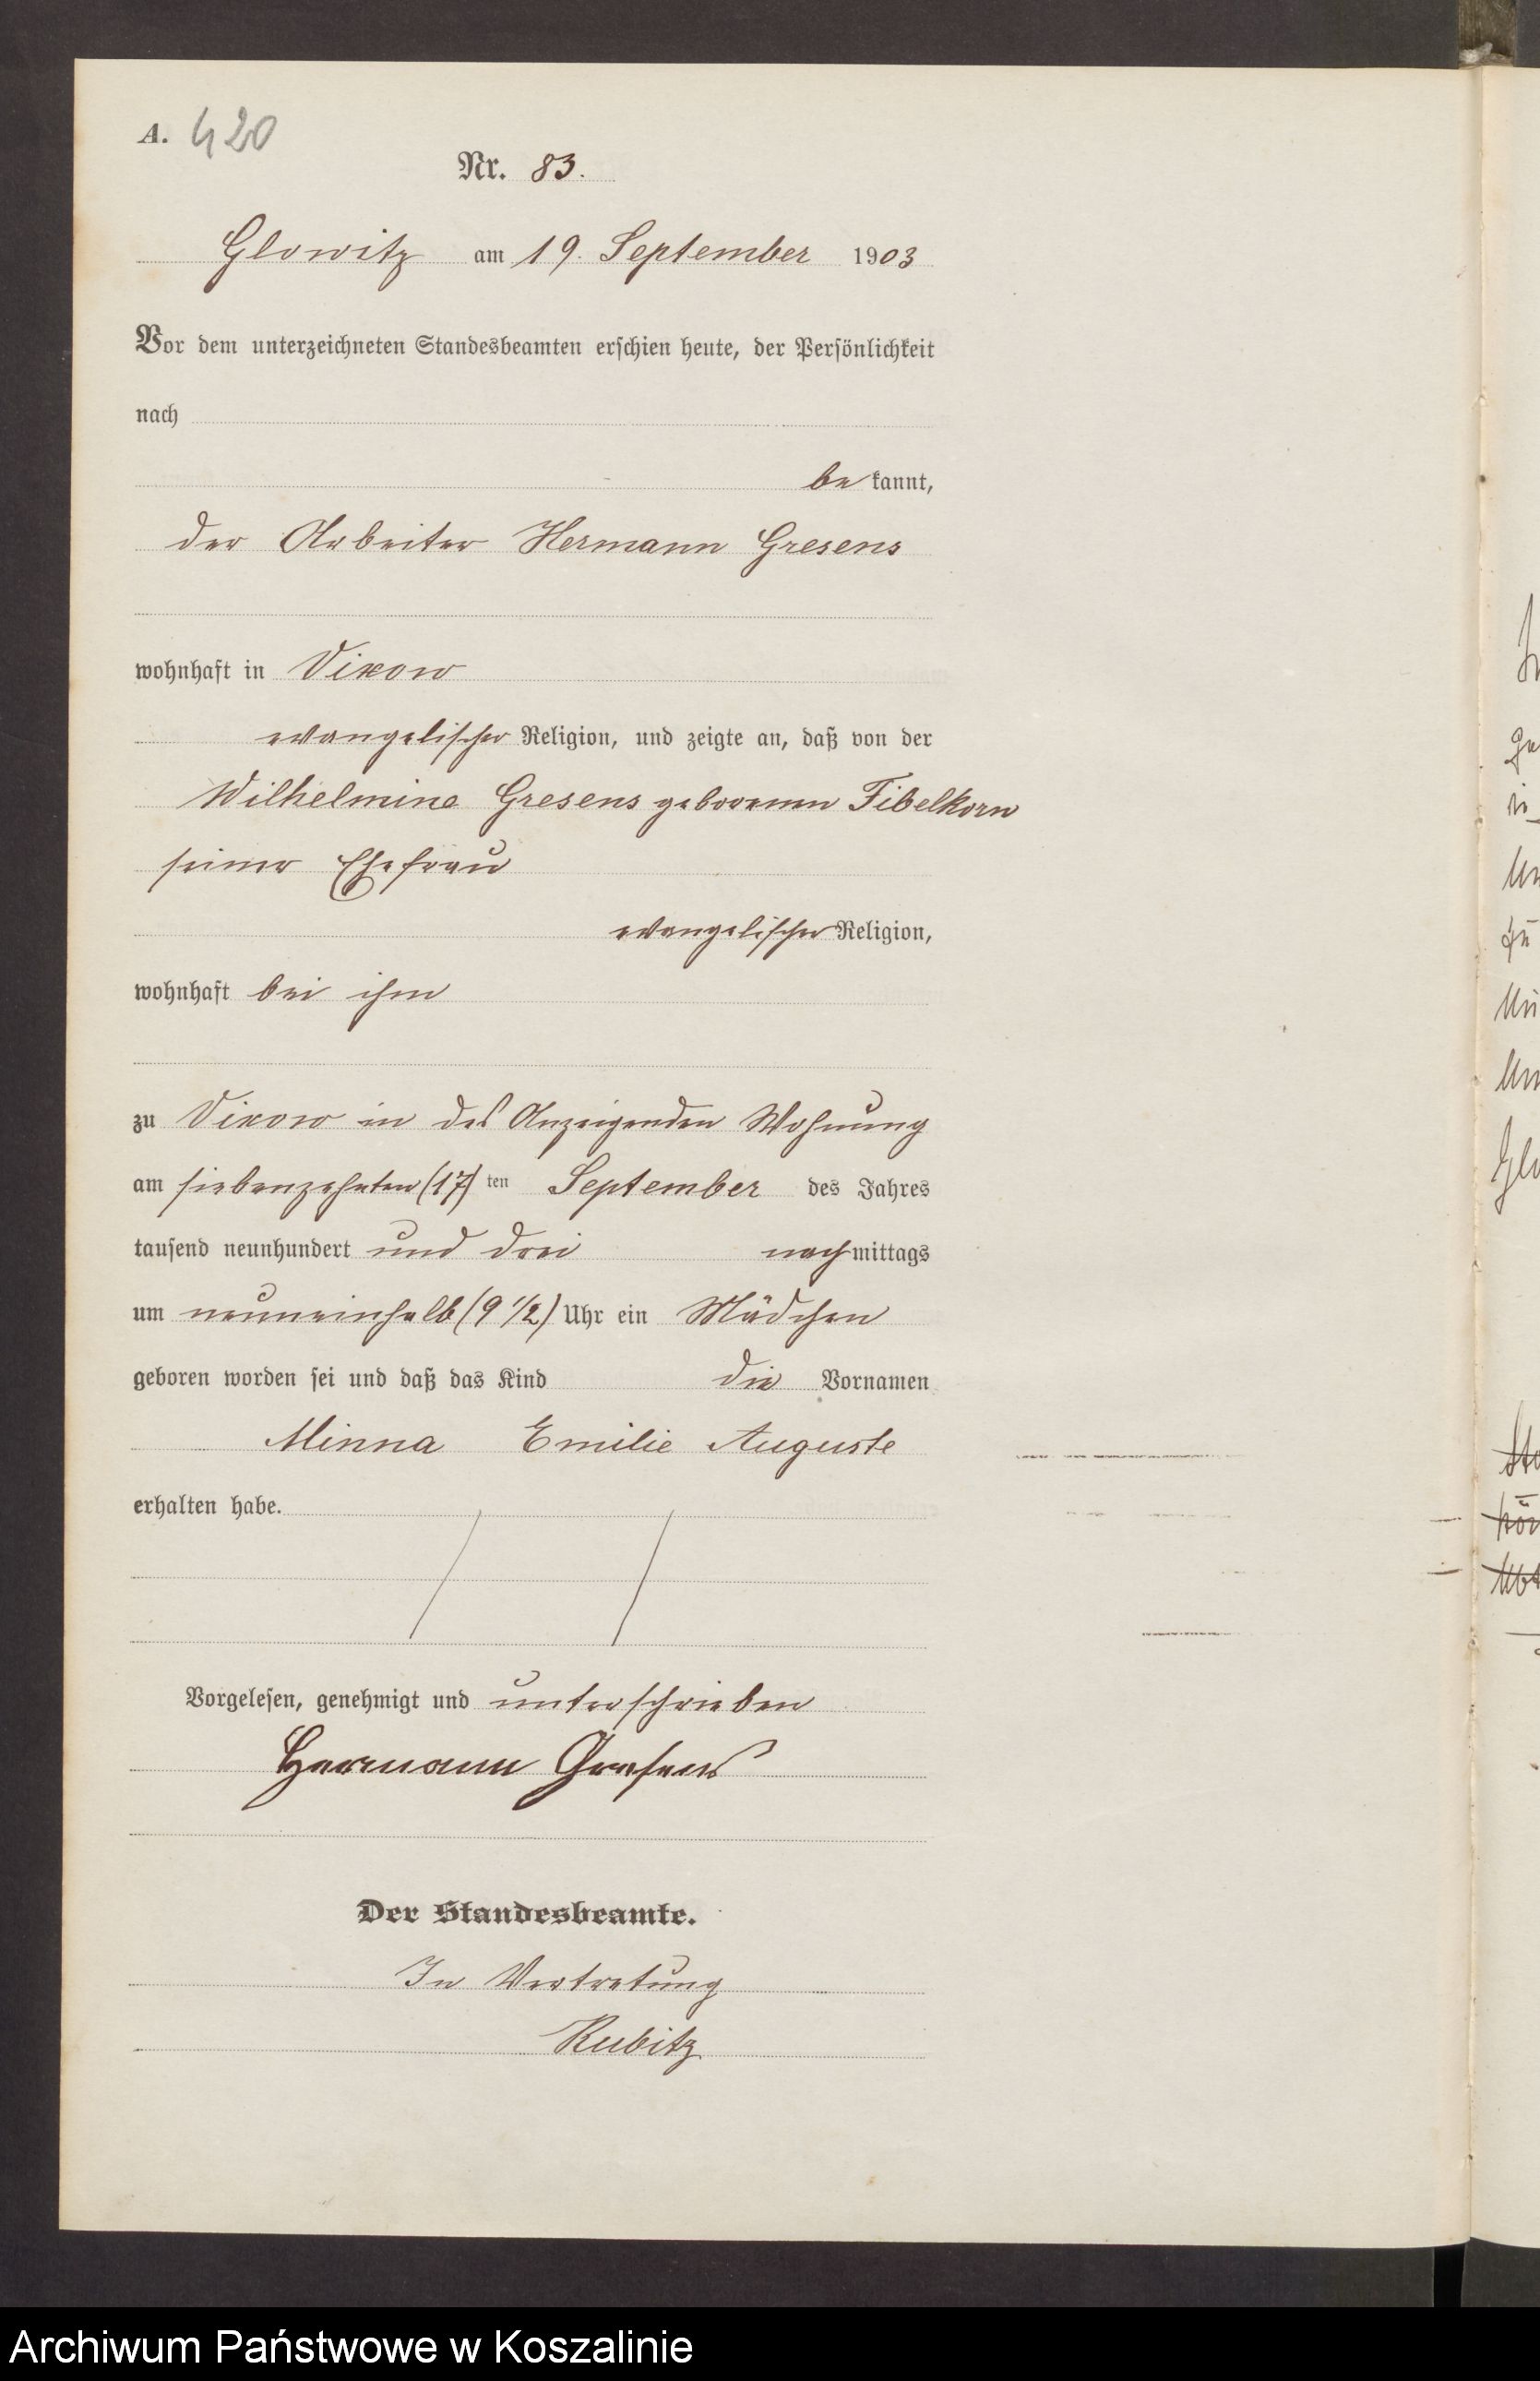 A. 420
Nr. 83.
Glowitz am 19. September 1903
Vor dem unterzeichneten Standesbeamten erschien heute, der Persönlichkeit
nach
be kannt,
der Arbeiter Hermann Gresens
wohnhaft in Vixow
evangelischer Religion, und zeigte an, daß von der
Wilhelmine Gresens geborenen Fibelkorn
seiner Ehefrau
evangelischer Religion,
wohnhaft bei ihm
zu Vixow in des Anzeigenden Wohnung
am siebenzehnten (17) ten September des Jahres
tausend neunhundert und drei nachmittags
um neuneinhalb (9 1/2) Uhr ein Mädchen
geboren worden sei und daß das Kind die Vornamen
Minna Emilie Auguste
erhalten habe.
Vorgelesen, genehmigt und unterschrieben
Hermann Gresens
Der Standesbeamte.
In Vertretung
Rubitz
Archiwum Państwowe w Koszalinie